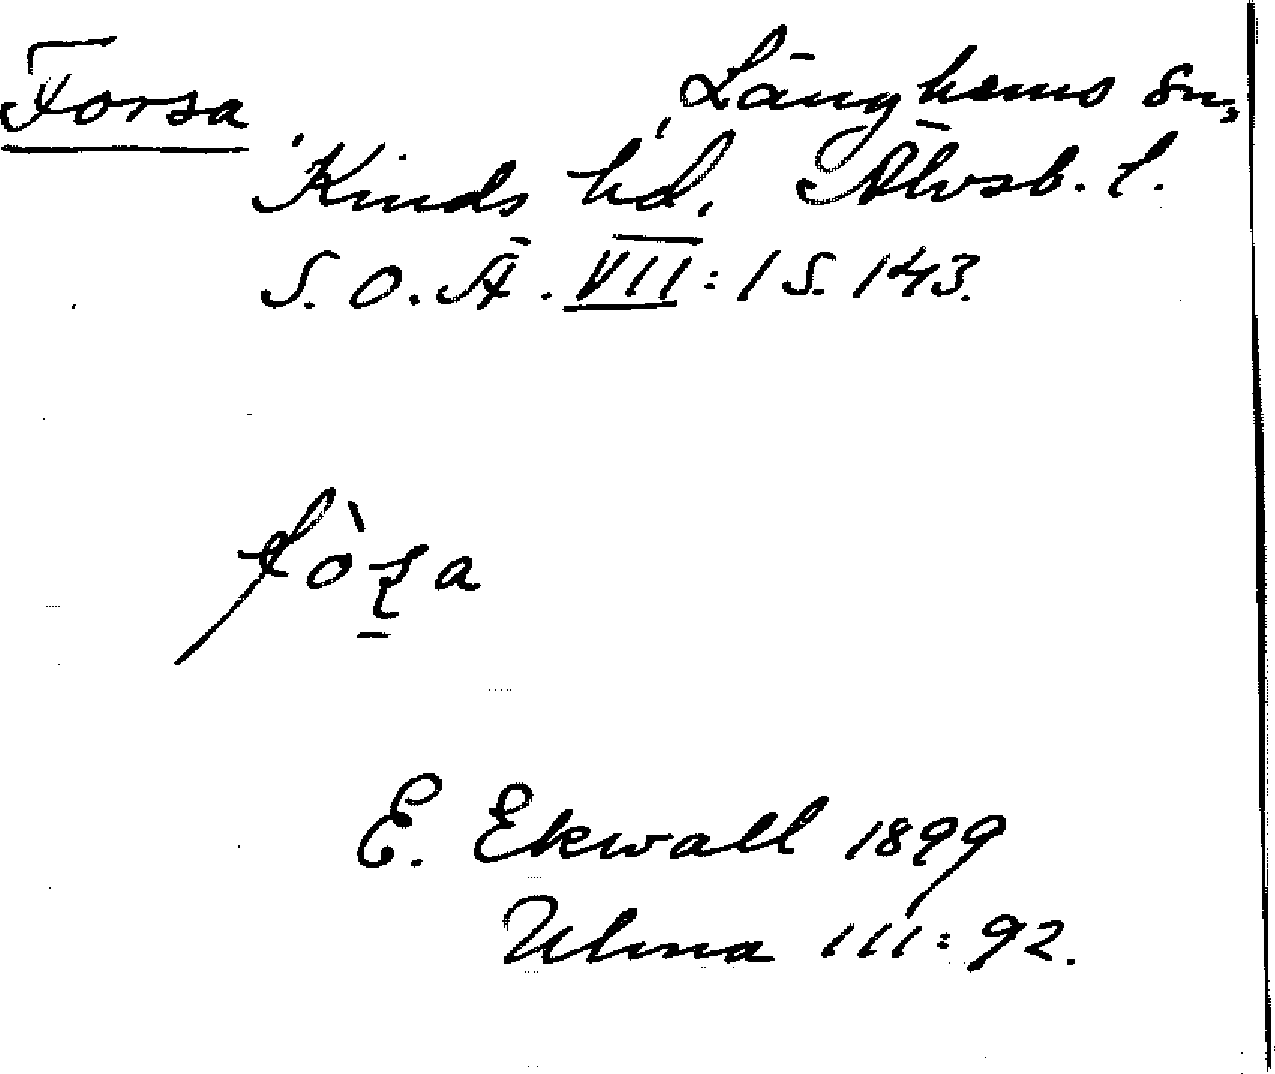 Forsa Länghems sn,
Kinds hd, Älvsb. l.
S. O. Ä. VII: 1 S. 143.
E. Ekwall 1899
Ulma 111: 92.